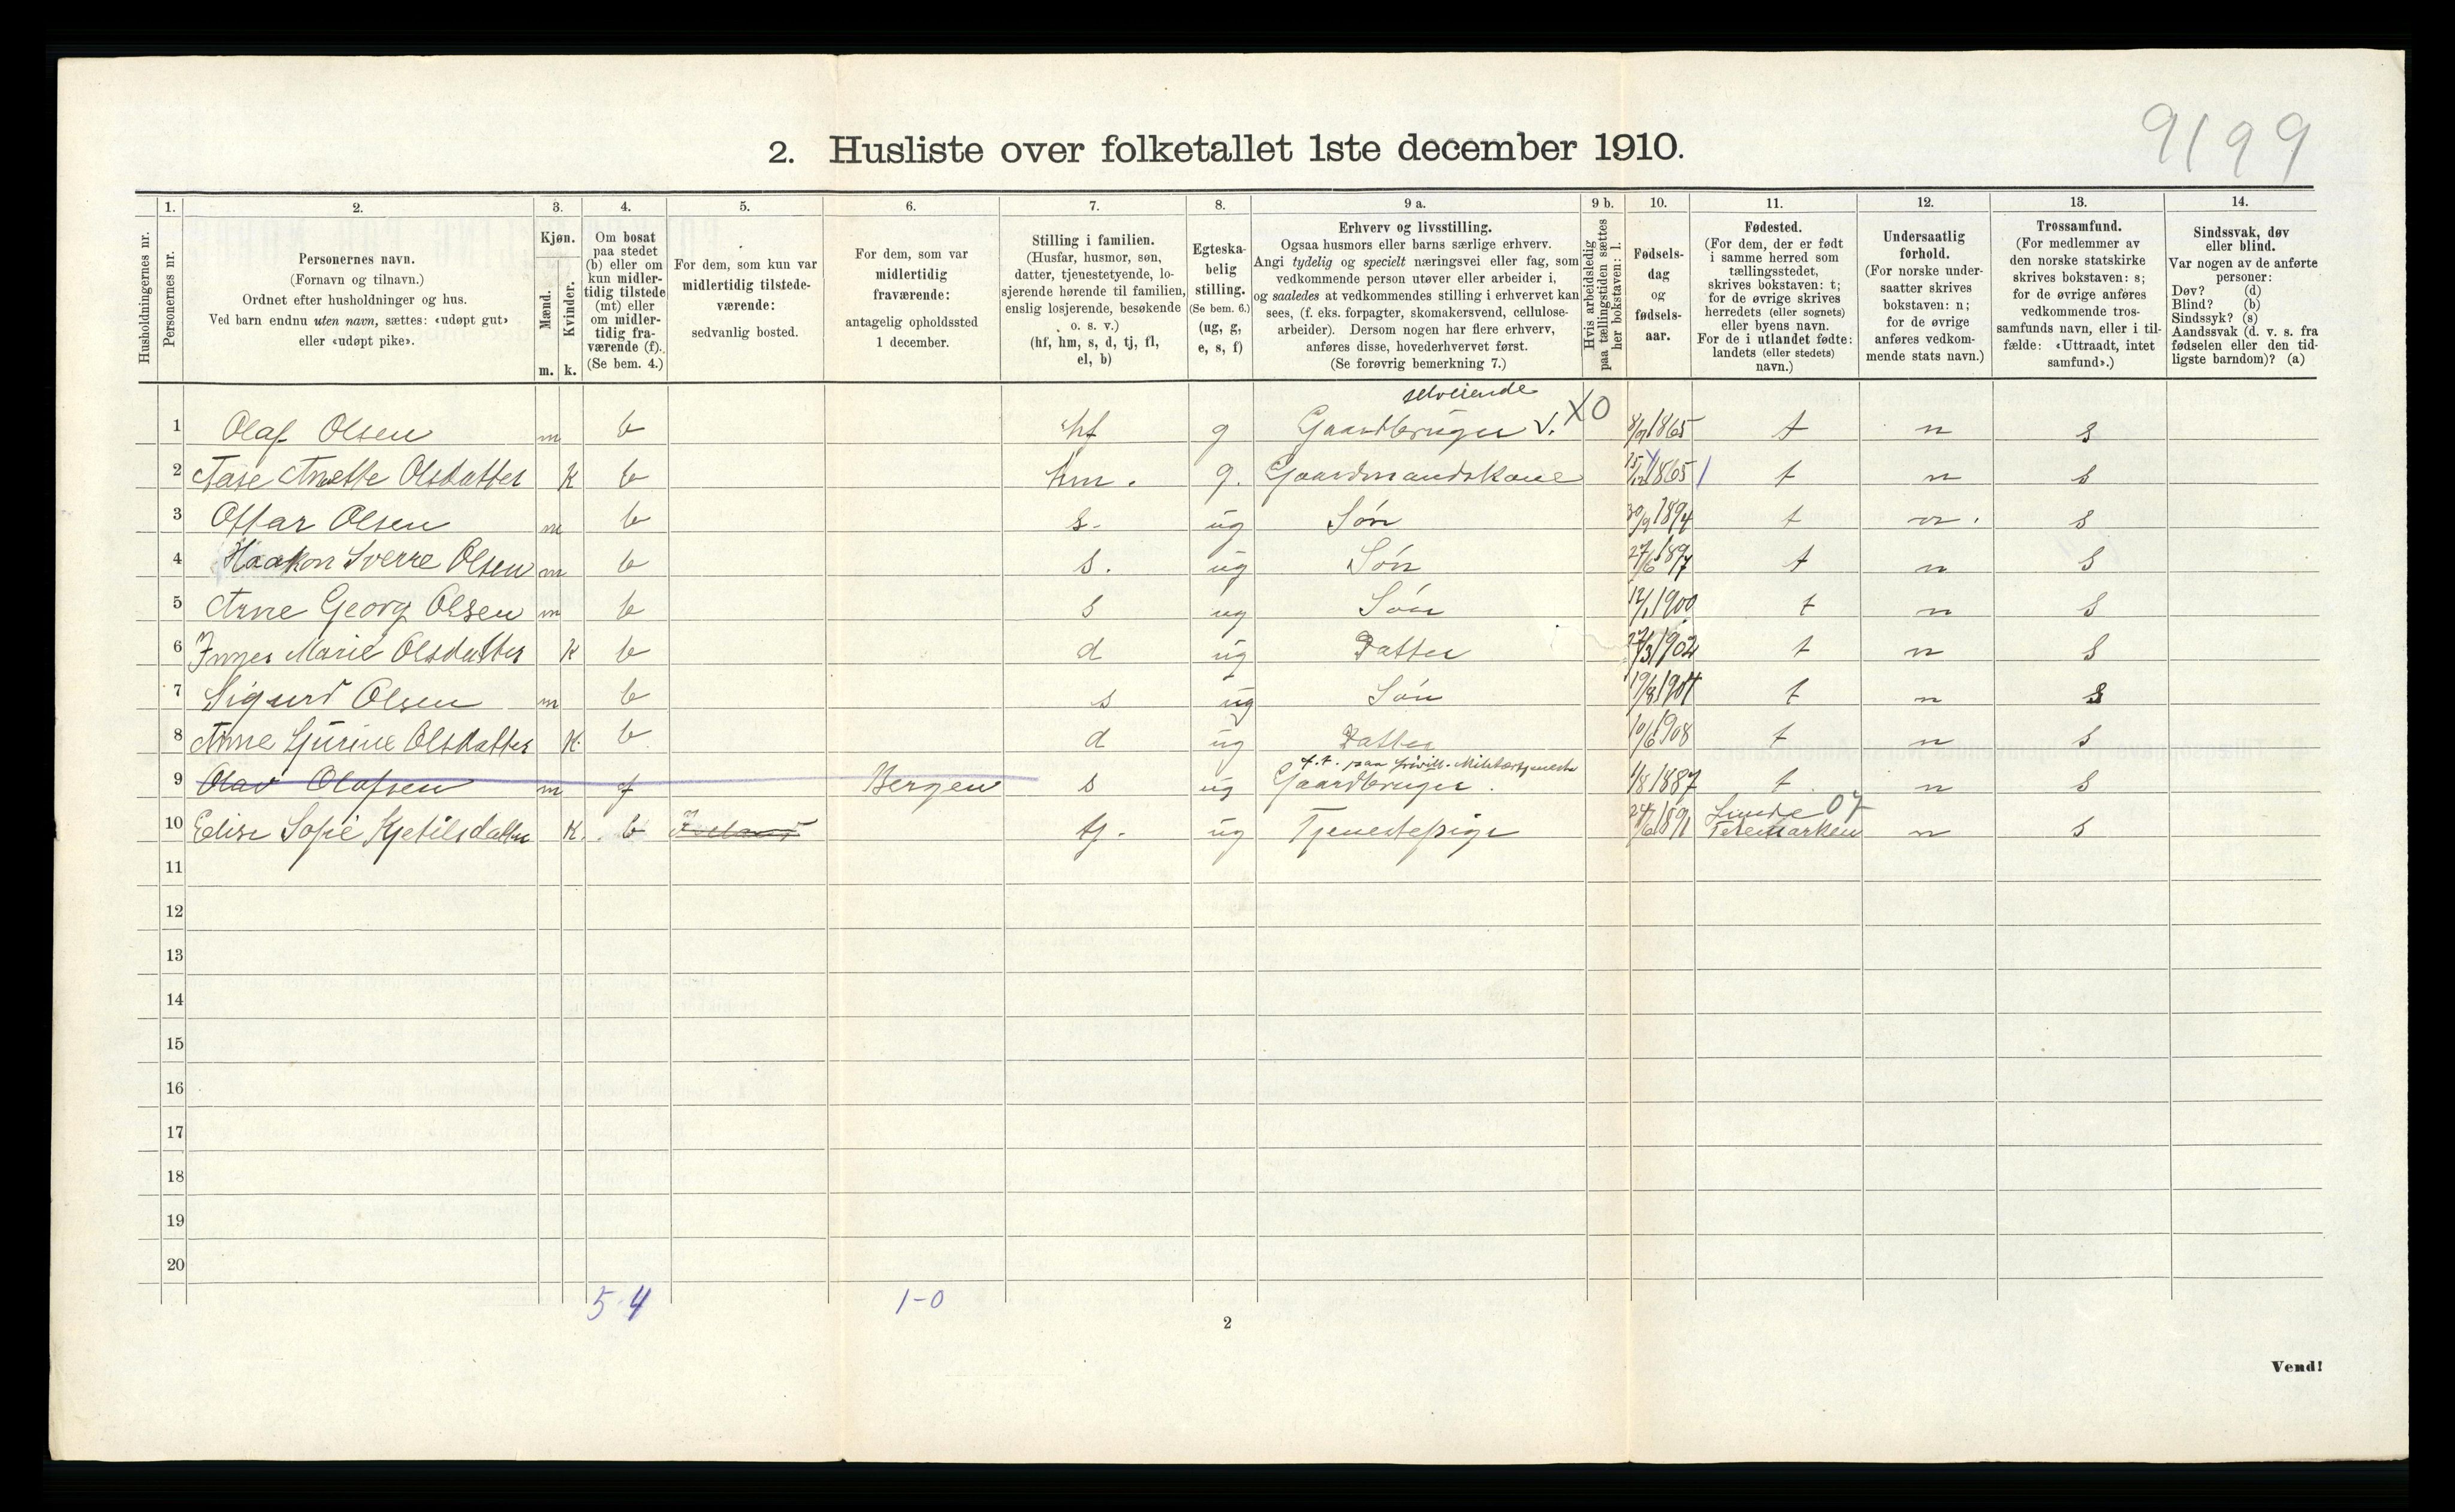 9199
2. Husliste over folketallet 1ste december 1910.
Husholdningernes nr.
1.
Personernes nr.
2.
Personernes navn.
(Fornavn og tilnavn.)
Ordnet efter husholdninger og hus.
Ved barn endnu uten navn, sættes: «udøpt gut»
eller «udøpt pike».
3.
Kjøn.
Mænd.
Kvinder.
m. k.
4.
Om bosat
paa stedet
(b) eller om
kun midler-
tidig tilstede
(mt) eller
om midler-
tidig fra-
værende (f).
(Se bem. 4.)
5.
For dem, som kun var
midlertidig tilstede-
værende:
sedvanlig bosted.
6.
For dem, som var
midlertidig
fraværende:
antagelig opholdssted
1 december.
7.
Stilling i familien.
(Husfar, husmor, søn,
datter, tjenestetyende, lo-
sjerende hørende til familien,
enslig losjerende, besøkende
o. s. v.)
(hf, hm, s, d, tj, fl,
el, b)
8.
Egteska-
belig
stilling.
(Se bem. 6.)
(ug, g,
e, s, f)
9 a.
Erhverv og livsstilling.
Ogsaa husmors eller barns særlige erhverv.
Angi tydelig og specielt næringsvei eller fag, som
vedkommende person utøver eller arbeider i,
og saaledes at vedkommendes stilling i erhvervet kan
sees, (f. eks. forpagter, skomakersvend, cellulose-
arbeider). Dersom nogen har flere erhverv,
anføres disse, hovederhvervet først.
(Se forøvrig bemerkning 7.)
9 b.
Hvis arbeidsledig
paa tællingstiden sættes
her bokstaven: l.
10.
Fødsels-
dag
og
fødsels-
aar.
11.
Fødested.
(For dem, der er født
i samme herred som
tællingsstedet,
skrives bokstaven: t;
for de øvrige skrives
herredets (eller sognets)
eller byens navn.
For de i utlandet fødte:
landets (eller stedets)
navn.)
12.
Undersaatlig
forhold.
(For norske under-
saatter skrives
bokstaven: n;
for de øvrige
anføres vedkom-
mende stats navn.)
13.
Trossamfund.
(For medlemmer av
den norske statskirke
skrives bokstaven: s;
for de øvrige anføres
vedkommende tros-
samfunds navn, eller i til-
fælde: «Uttraadt, intet
samfund».)
14.
Sindssvak, døv
eller blind.
Var nogen av de anførte
personer:
Døv? (d)
Blind? (b)
Sindssyk? (s)
Aandssvak (d. v. s. fra
fødselen eller den tid-
ligste barndom)? (a)
selveiende
1 Olaf Olsen m b hf g Gaardbruger V. XO 8/9 1865 t n s
2 Aase Anette Olsdatter K b hm. g. Gaardmandskone 1865 t n s
3 Ottar Olsen m b s. ug Søn 30/9 1894 t n. s
4 Haakon Sverre Olsen m b s. ug Søn 27/6 1897 t n s
5 Arne Georg Olsen m b s ug Søn 12/1 1900 t n s
6 Inger Marie Olsdatter K b d ug Datter 27/3 1902 t n s
7 Sigurd Olsen m b s ug Søn 19/8 1904 t n s
8 Anne Gurine Olsdatter K. b d ug Datter 10/6 1908 t n s
f.t. paa frivill. Militærtjeneste
9 Olav Olafsen m f Bergen s ug Gaardbruger. 1/8 1887 t. n s
10 Elise Sofie Kjetilsdatter K. b tj. ug Tjenestepige 24/6 1891 Lunde 07 Telemarken n s
11
12
13
14
15
16
17
18
19
20
5 4
1-0
2
Vend!